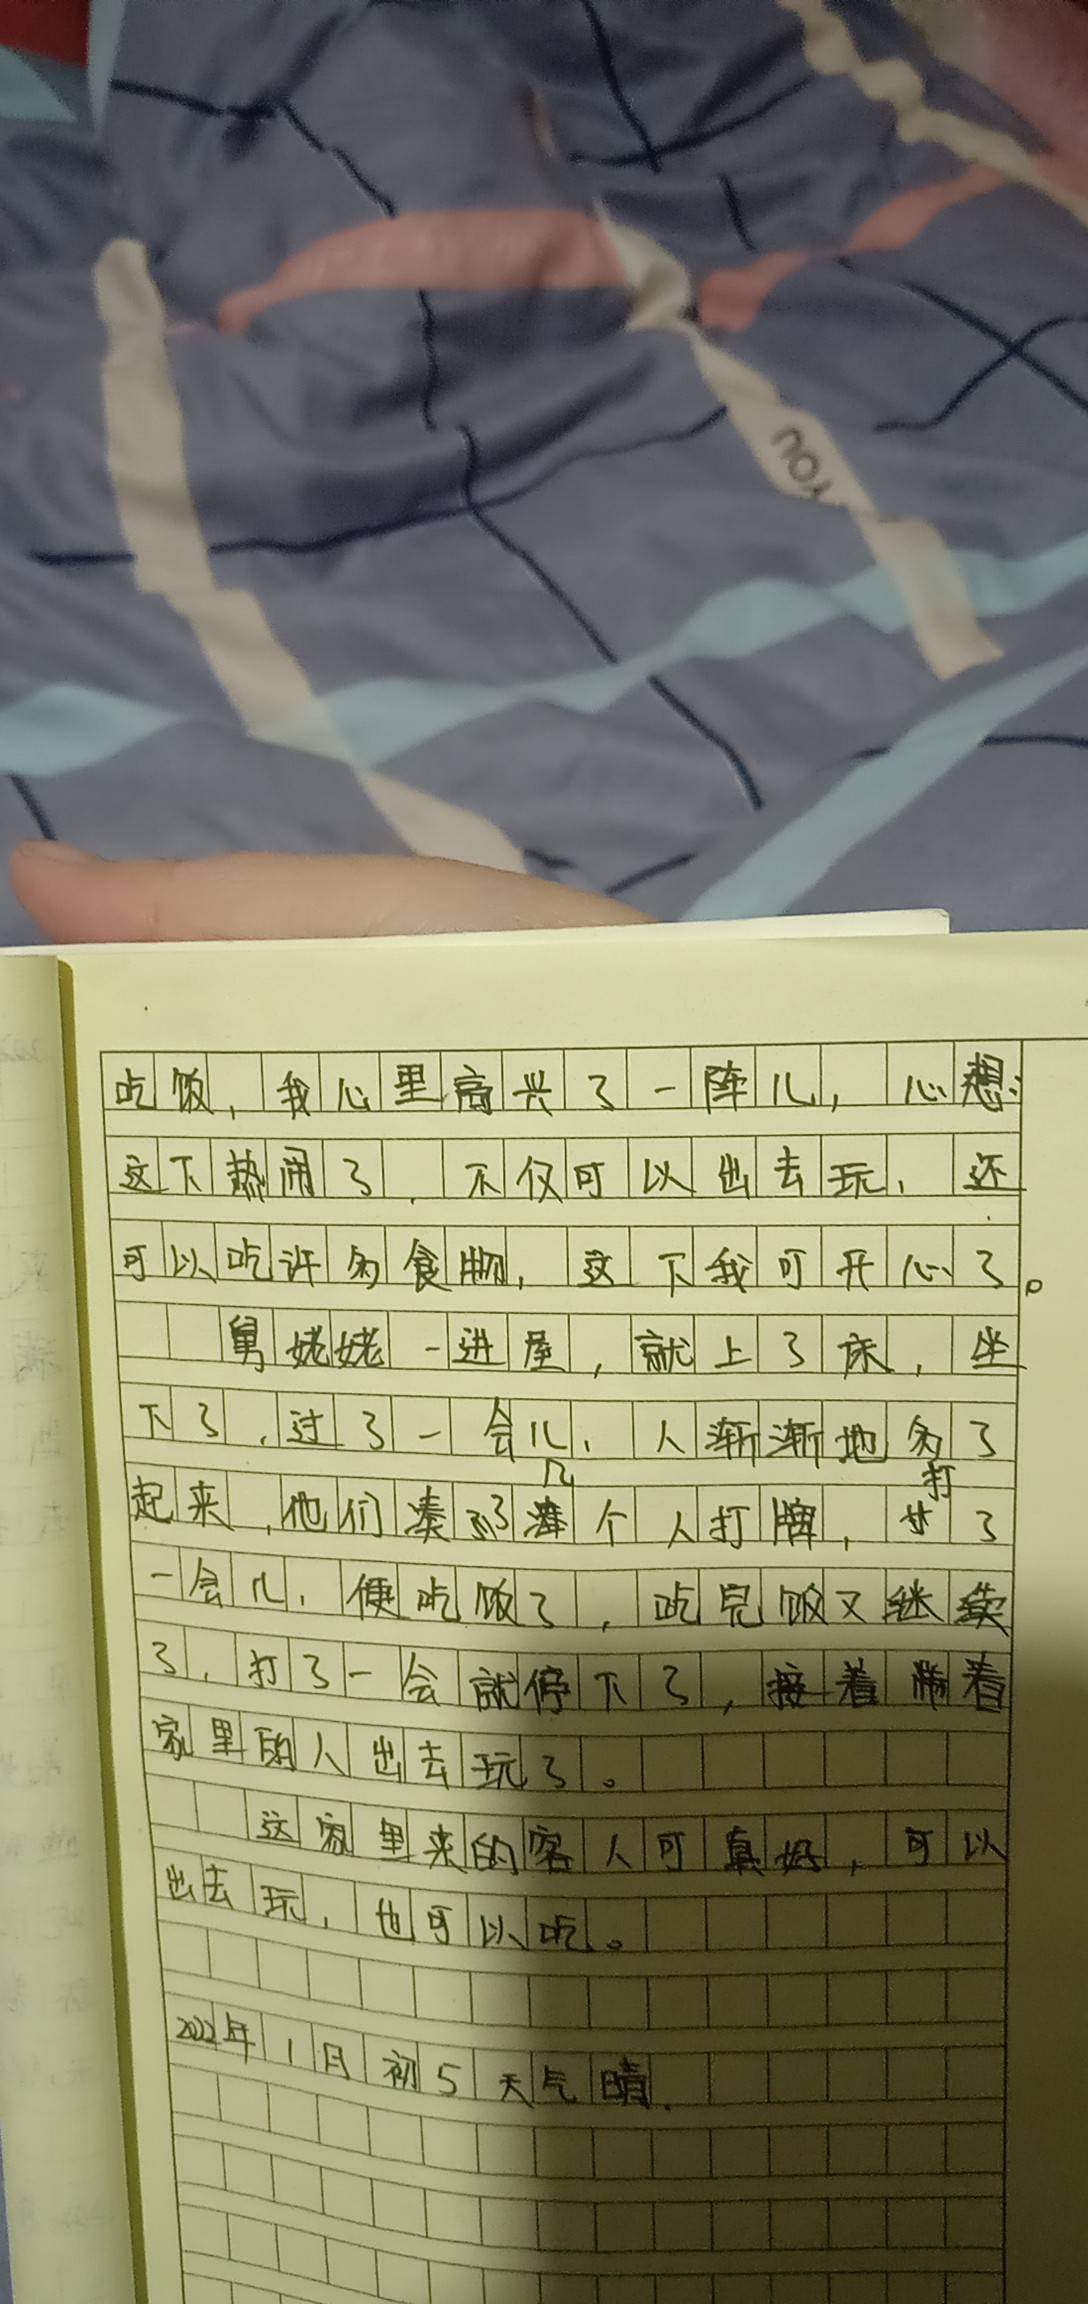 YOU
吃饭，我心里高兴了一阵儿，心想：
这下热闹了，不仅可以出去玩，还
可以吃许多食物，这下我可开心了。
舅姥姥一进屋，就上了床，坐
下了，过了一会儿，人渐渐地多了
起来，他们凑到几个人打牌，打了
一会儿，便吃饭了，吃完饭又继续
了，打了一会就停下了，接着带着
家里的人出去玩了。
这家里来的客人可真好，可以
出去玩，也可以吃。
2022年1月初5天气晴.